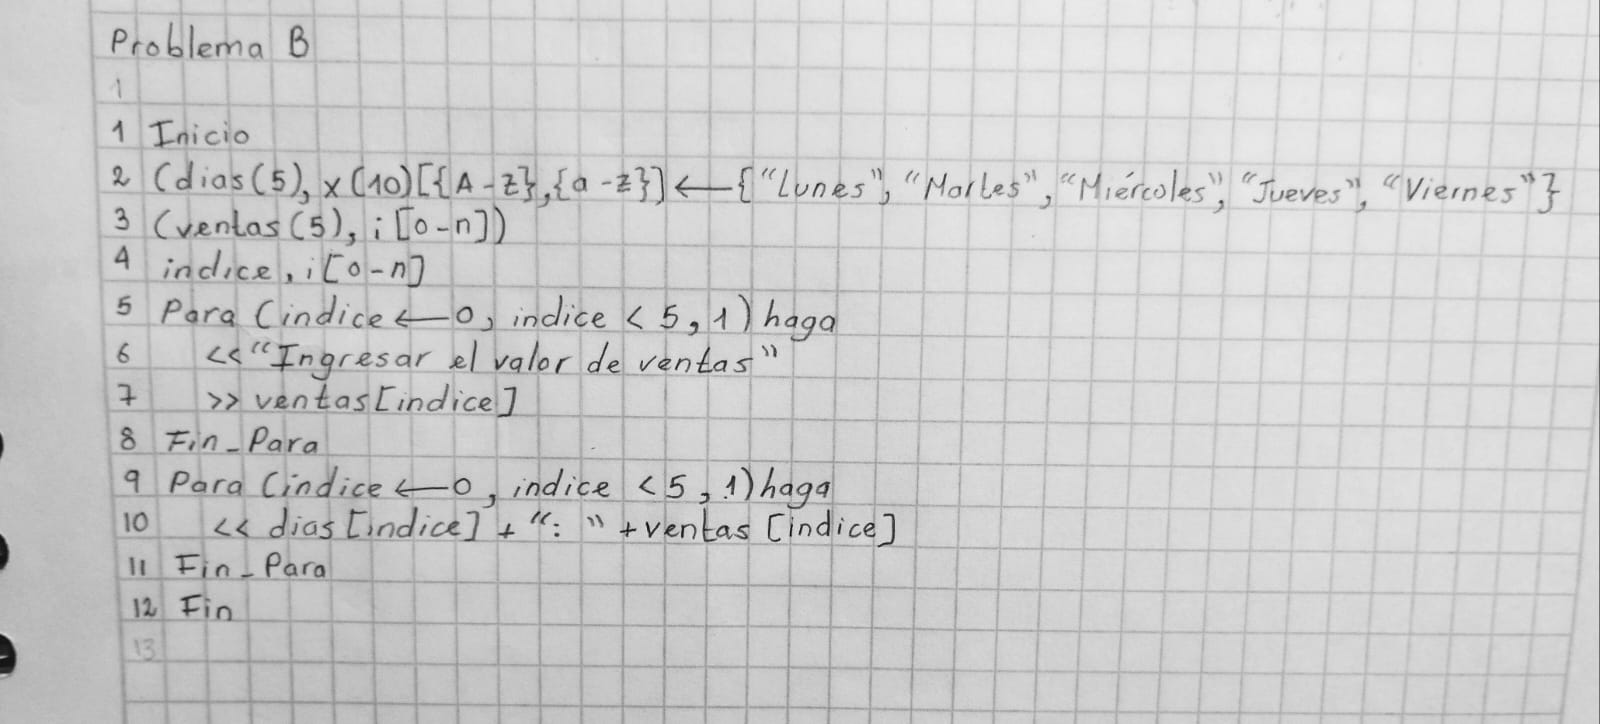 Problema B
1
1 Inicio
2 (dias(5), x(10)[{A-Z},{a-z}]←{"Lunes", "Martes", "Miércoles", "Jueves", "Viernes"}
3 (ventas(5), i[0-n])
4 indice, i[0-n]
5 Para (indice←0, indice < 5, 1) haga
6 <<"Ingresar el valor de ventas"
7 >> ventas[indice]
8 Fin_Para
9 Para (indice←0, indice < 5, 1) haga
10 << dias[indice] + ": " + ventas [indice]
11 Fin_Para
12 Fin
13